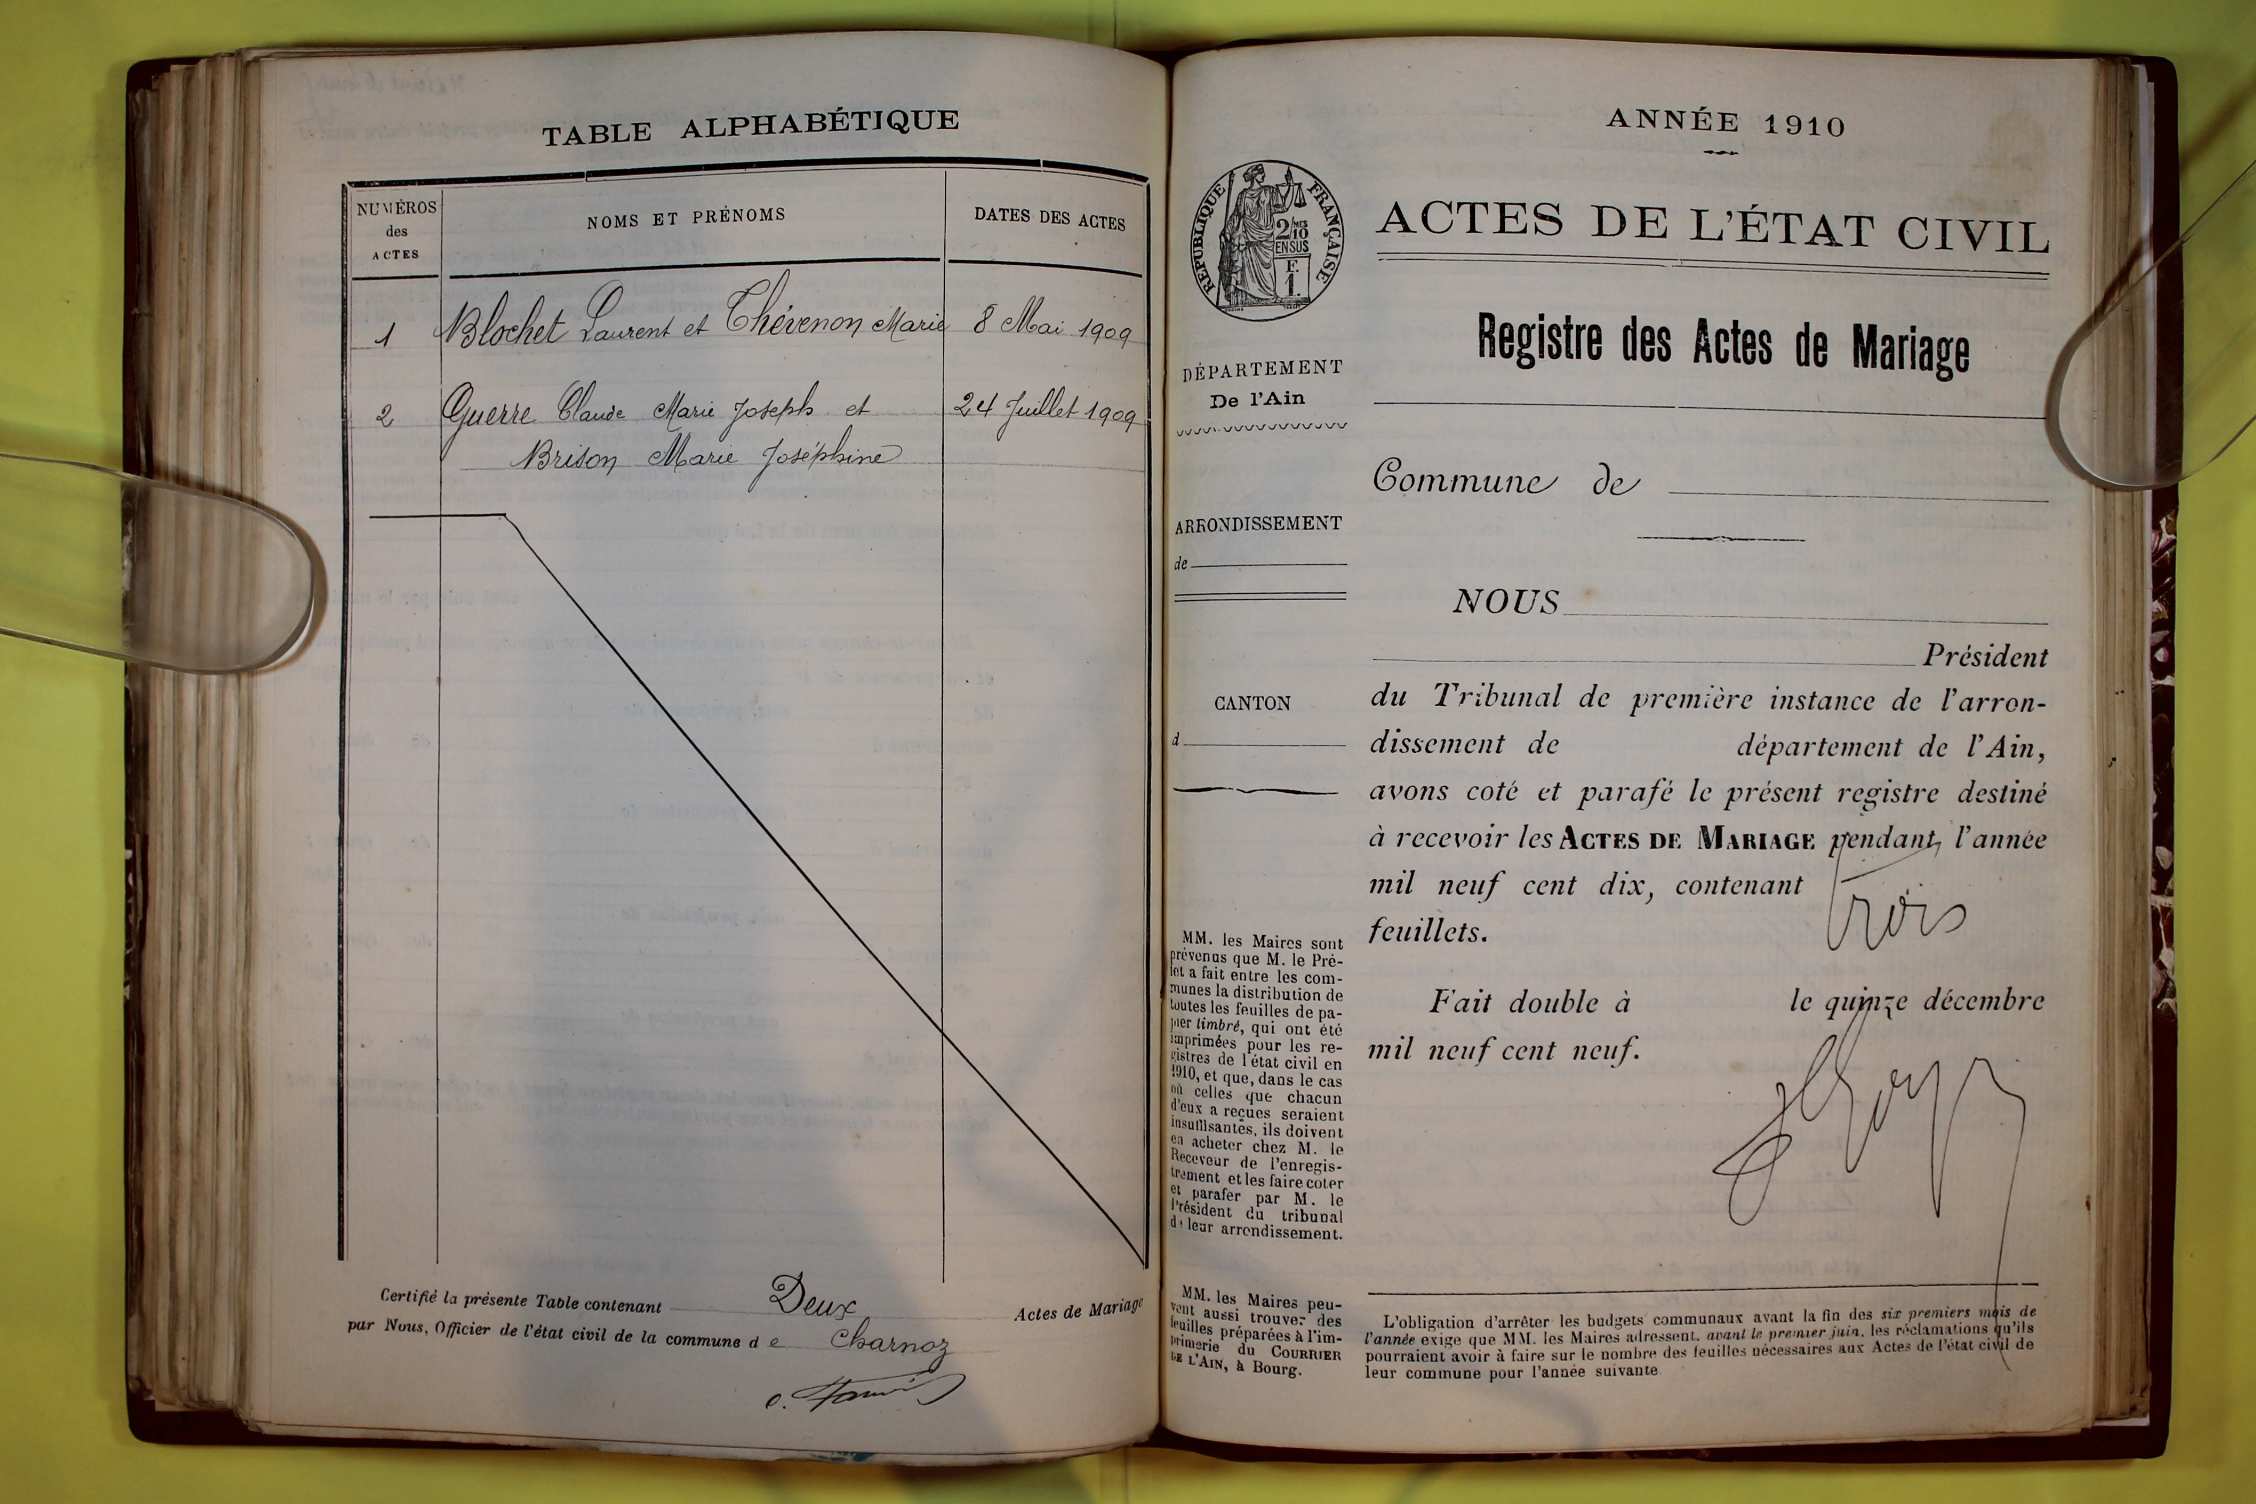 TABLE ALPHABÉTIQUE
NUMÉROS
des
ACTES
NOMS ET PRÉNOMS
DATES DES ACTES
1 Blochet Laurent et Thévenon Marie 8 Mai 1909
2 Guerre Claude Marie Joseph et 24 Juillet 1909
Brison Marie Joséphine
Certifié la présente Table contenant Deux Actes de Mariage
par Nous, Officier de l'état civil de la commune d e Charnoz
ANNÉE 1910
RÉPUBLIQUE FRANÇAISE
2/10
EN SUS
F.
1.
DÉPARTEMENT
De l'Ain
ARRONDISSEMENT
de
CANTON
d
MM. les Maires sont
prévenus que M. le Pré-
fet a fait entre les com-
munes la distribution de
toutes les feuilles de pa-
pier timbré, qui ont été
imprimées pour les re-
gistres de l'état civil en
1910, et que, dans le cas
où celles que chacun
d'eux a reçues seraient
insuffisantes, ils doivent
en acheter chez M. le
Receveur de l'enregis-
trement et les faire coter
et parafer par M. le
Président du tribunal
de leur arrondissement.
MM. les Maires peu-
vent aussi trouver des
feuilles préparées à l'im-
primerie du COURRIER
DE L'AIN, à Bourg.
ACTES DE L'ÉTAT CIVIL
Registre des Actes de Mariage
Commune de
NOUS
Président
du Tribunal de première instance de l'arron-
dissement de département de l'Ain,
avons coté et parafé le présent registre destiné
à recevoir les ACTES DE MARIAGE pendant l'année
mil neuf cent dix, contenant Trois
feuillets.
Fait double à le quinze décembre
mil neuf cent neuf.
L'obligation d'arrêter les budgets communaux avant la fin des six premiers mois de
l'année exige que MM. les Maires adressent, avant le premier juin, les réclamations qu'ils
pourraient avoir à faire sur le nombre des feuilles nécessaires aux Actes de l'état civil de
leur commune pour l'année suivante